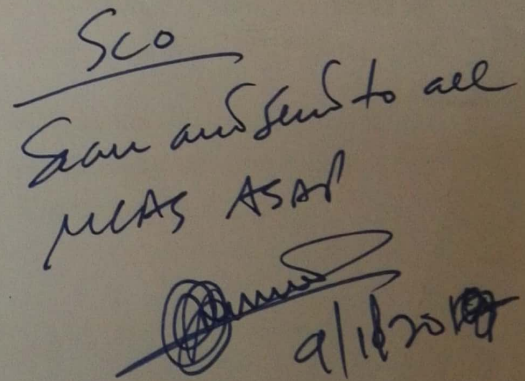 Sco
Scan and send to all
MCAS ASAP